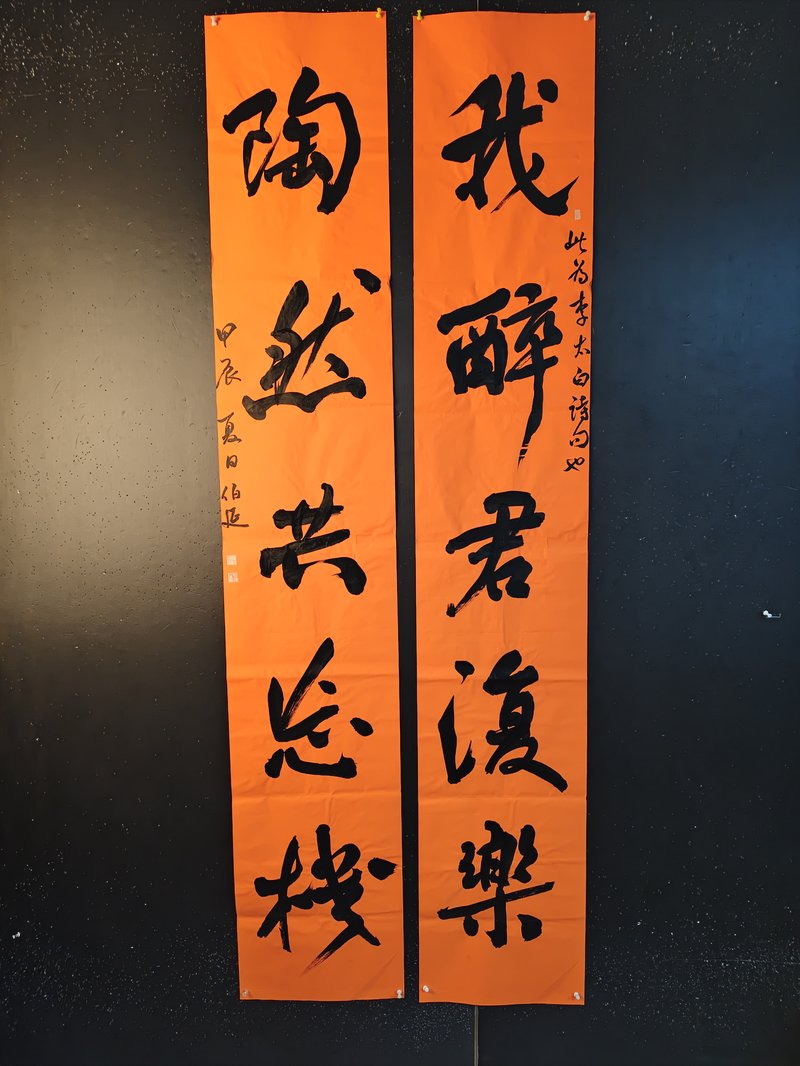 我醉君復樂
此为李太白詩句也
陶然共忘機
甲辰夏日伯延